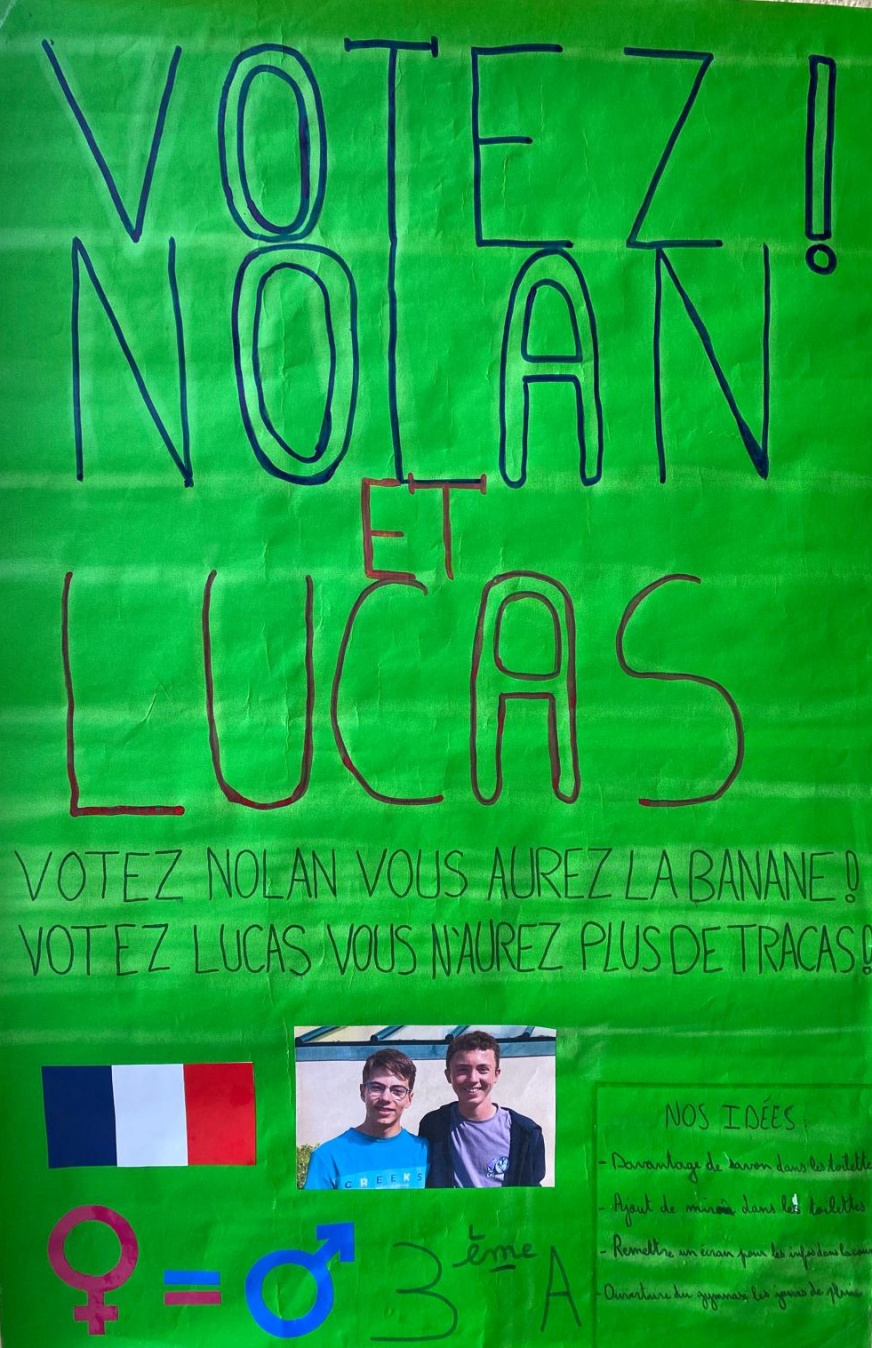 VOTEZ !
NOLAN
ET
LUCAS
VOTEZ NOLAN VOUS AUREZ LA BANANE !
VOTEZ LUCAS VOUS N'AUREZ PLUS DE TRACAS !
CREEKS
NOS IDÉES :
- Davantage de savon dans les toilette
- Ajout de miroir dans les toilettes
- Remettre un écran pour les infos dans la cour
- Ouverture du gymnase les jours de pluie
=
3ème A